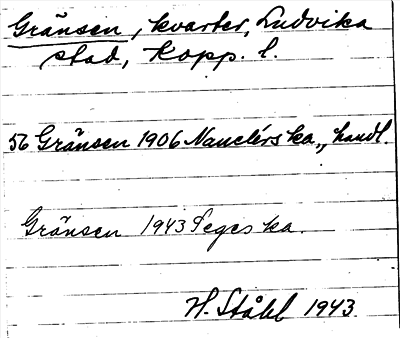 Gränsen, kvarter, Ludvika
stad, Kopp. l.
56 Gränsen 1906 Nauclérs ka., handl.
Gränsen 1943 Seges ka.
H. Ståhl 1943.